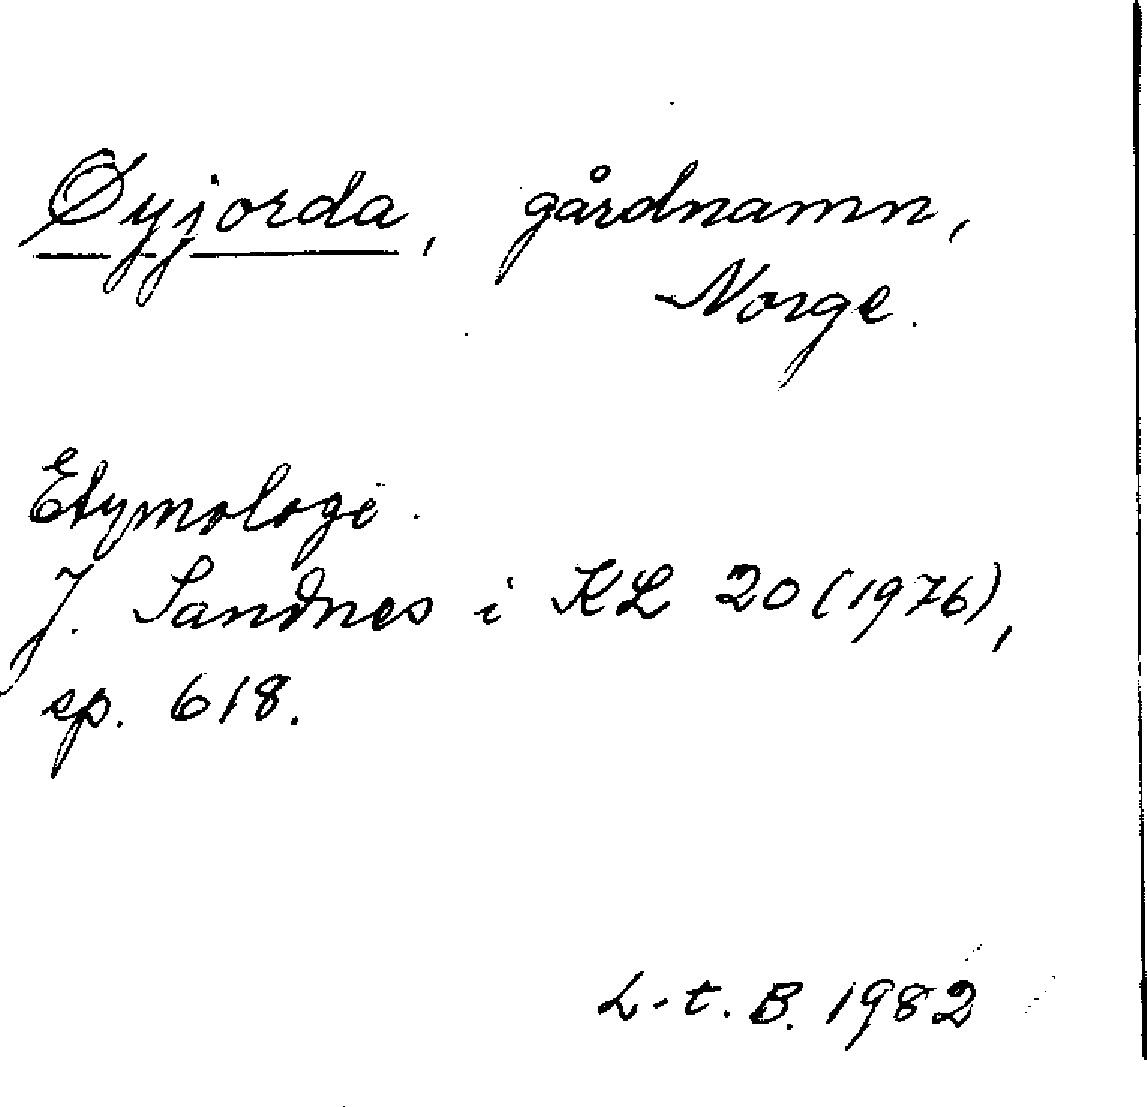 Øyjorda, gårdnamn,
Norge.
Etymologi.
J. Sandnes i KL 20 (1976),
sp. 618.
L-t. B. 1982